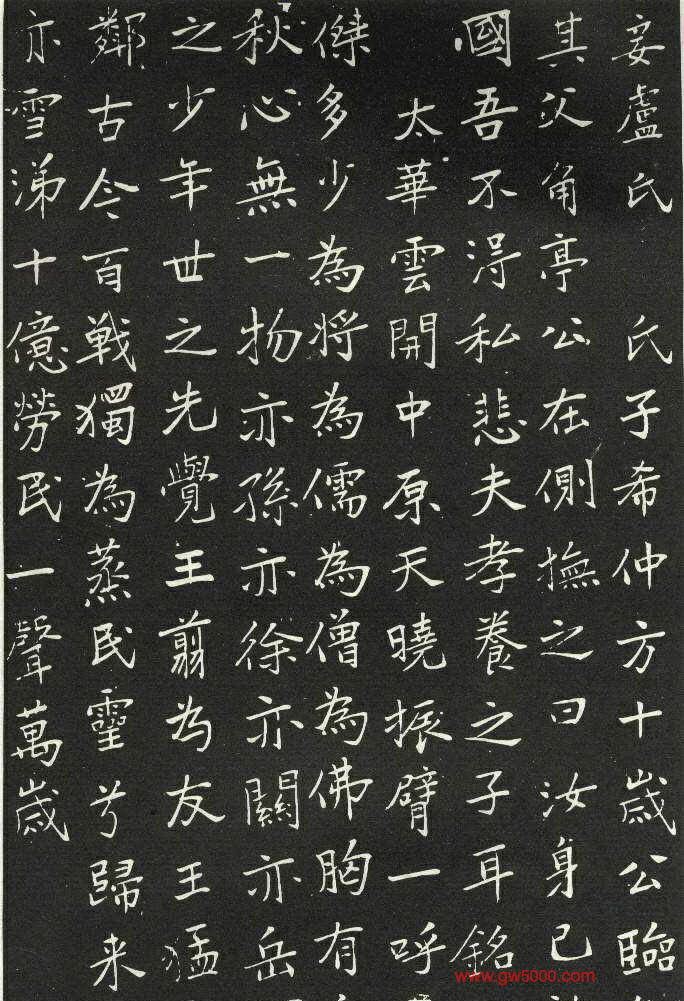 妾盧氏 氏子希仲方十歲公臨
其父角亭公在側撫之曰汝身已
國吾不淂私悲夫孝養之子耳銘
太華雲開中原天曉振臂一呼
傑多少為將為儒為僧為佛胸有
秋心無一物亦孫亦徐亦關亦岳
之少年世之先覺王翦為友王猛
鄰古今百戰獨為蒸民靈兮歸来
亦雪涕十億勞民一聲萬歲
www.gw5000.com